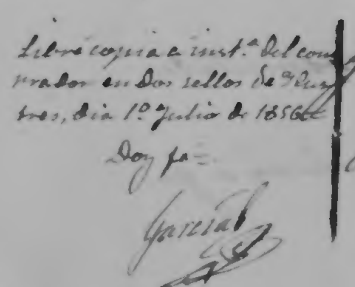 Libré copia a inst.ª del com
prador en dos sellos de Ylus
tres, dia 1º Julio de 1856
Doy fe=
García